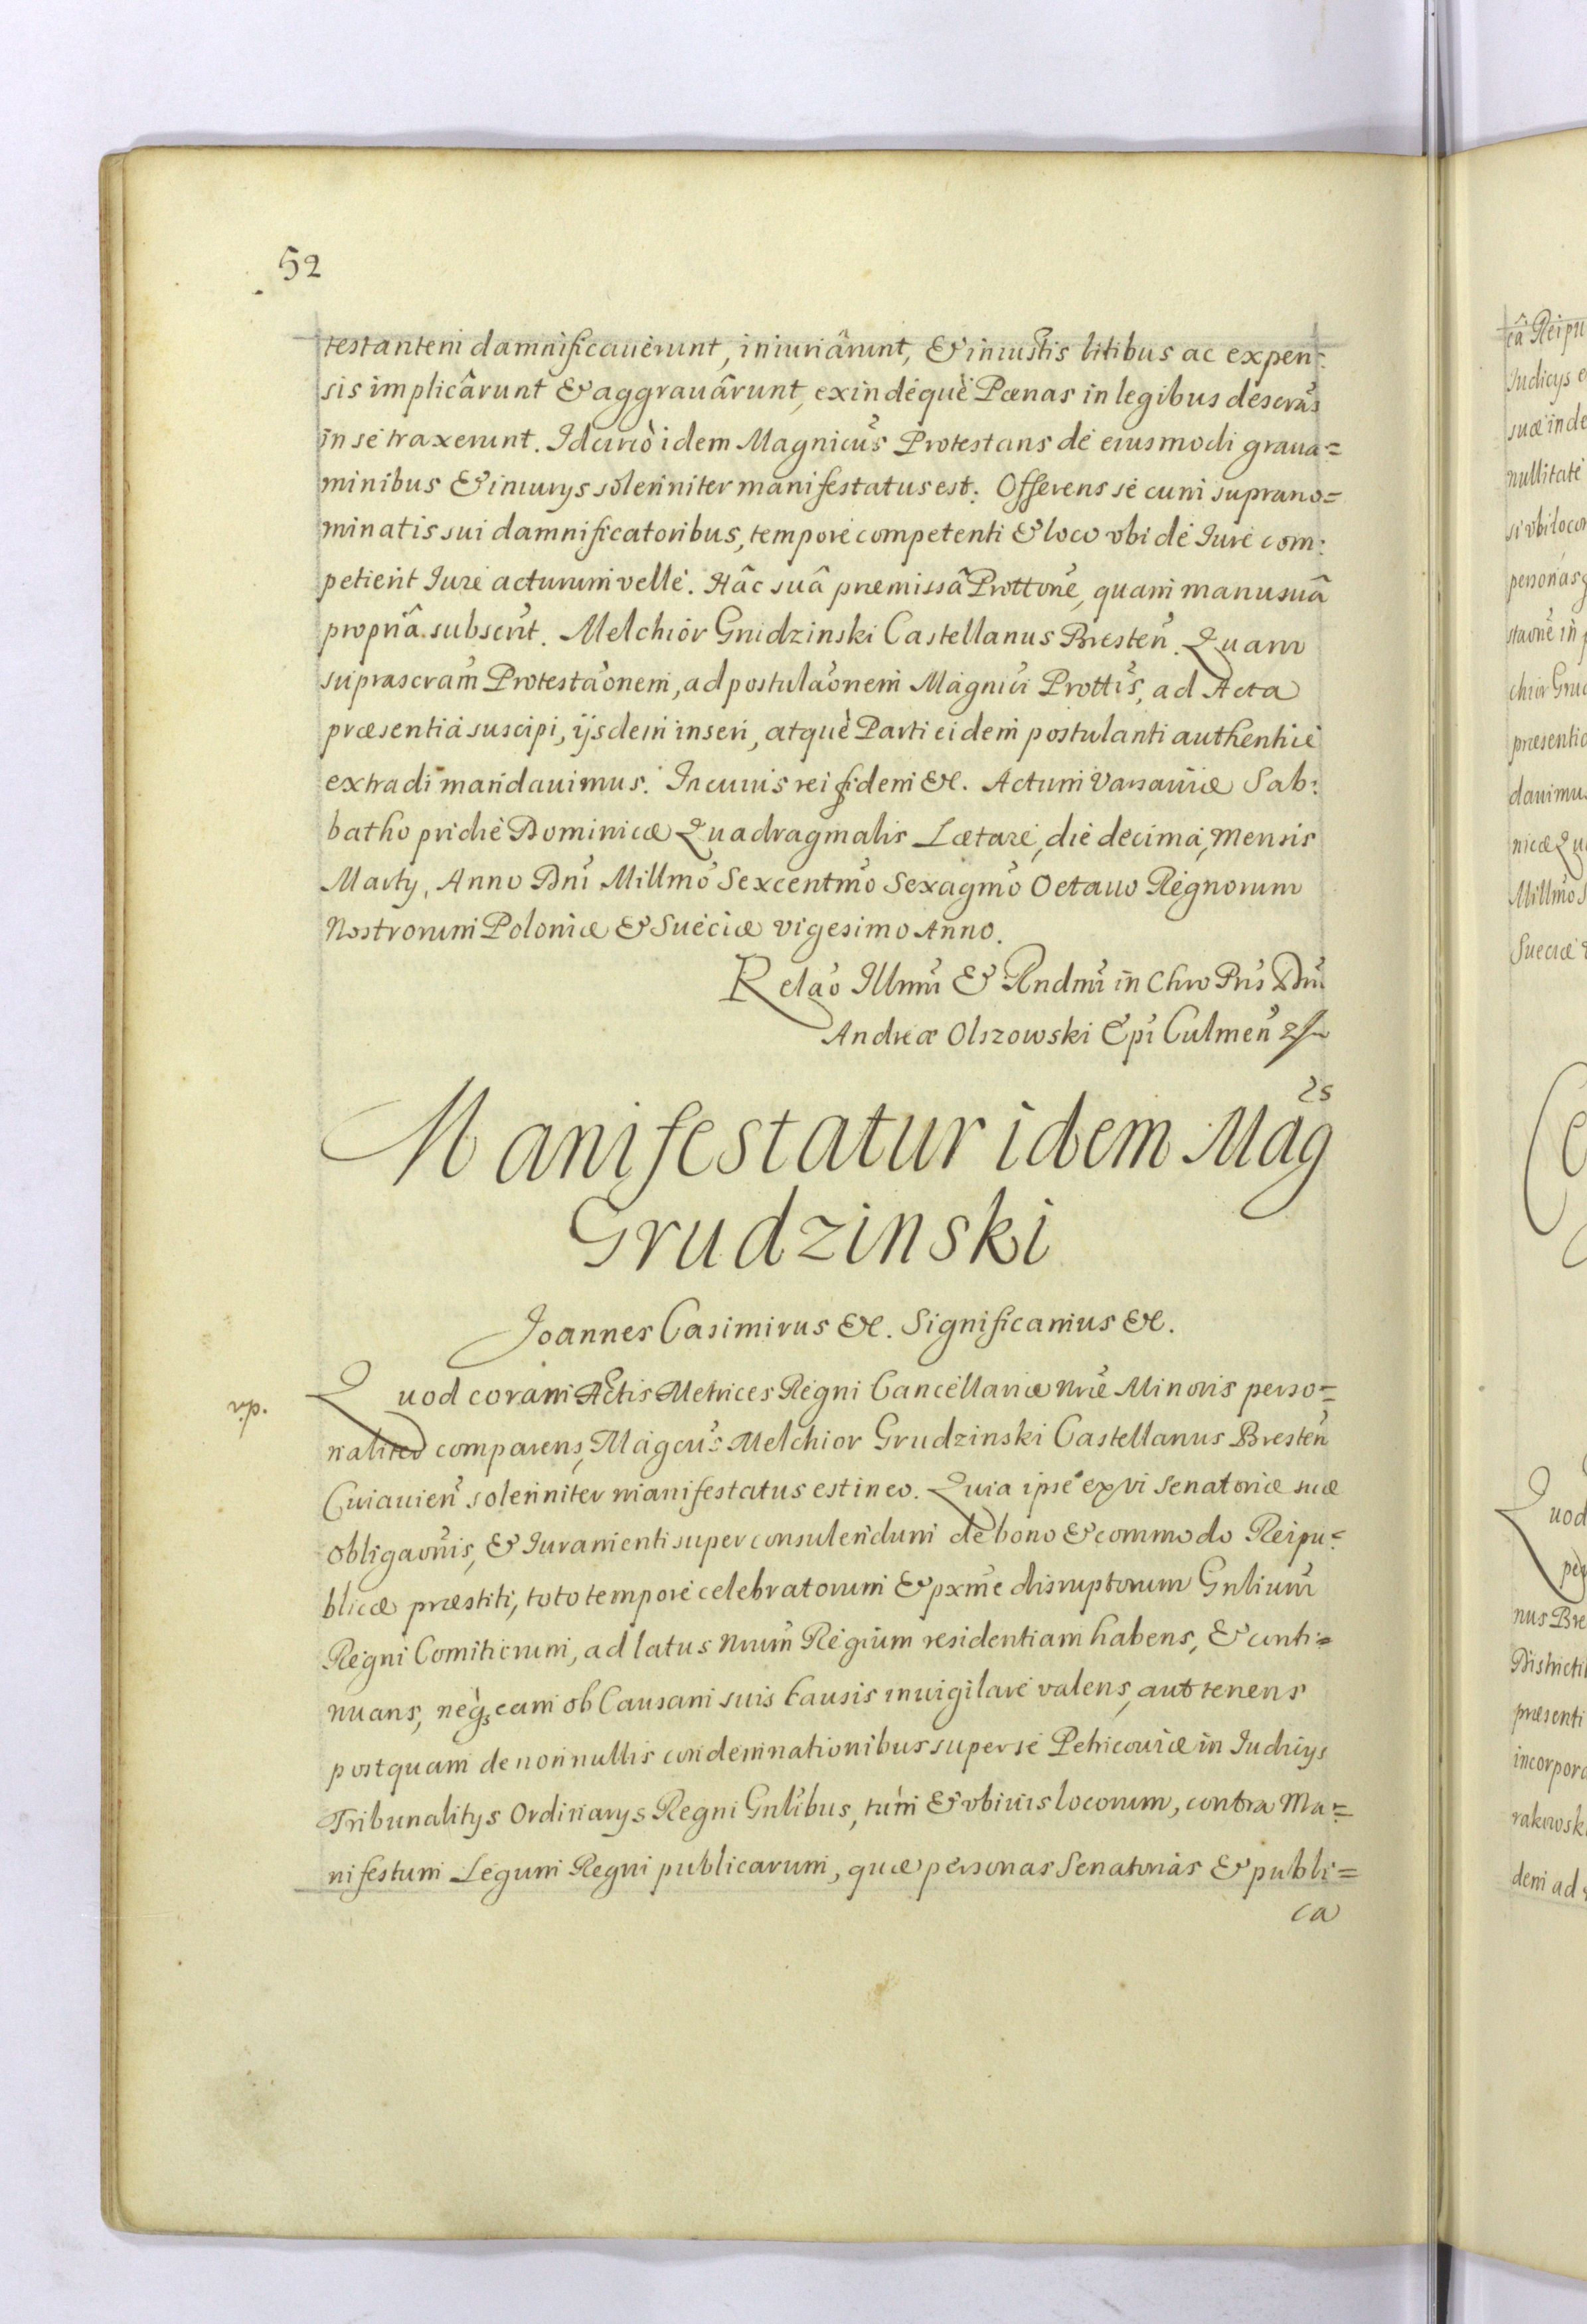 52
testantem damnificauerunt, iniuriârunt, & iniustis litibus ac expen:
sis implicârunt & aggrauârunt, exindequè Pœnas in legibus descrãs
in se traxerunt. Idcircò idem Magnicus Protestans de eiusmodi graua=
minibus & iniurys solenniter manifestatus est: Offerens se cum suprano=
minatis sui damnificatoribus, tempore competenti & loco vbi de Iure com:
petierit Iure acturum velle. Hâc suâ præmissâ Prottone, quam manu suâ
propriâ subscrit. Melchior Grudzinski Castellanus Bresten. Quam
suprascram Protestaonem, ad postulaonem Magnici Prottis, ad Acta
præsentia suscipi, ijsdem inseri, atquè Parti eidem postulanti authentice
extradi mandauimus. In cuius rei fidem &c. Actum Varsauiæ Sab:
batho pridie Dominicæ Quadragmalis Lætare, die decima, mensis
Marty, Anno Dni Millmo Sexcentmo Sexagmo Octauo Regnorum
Nostrorum Poloniæ & Sueciæ vigesimo Anno.
Relao Illmi & Rndmi in Chro Pris Dni
Andreæ Olszowski Epi Culmen
Manifestatur idem Mag cus
Grudzinski
Joannes Casimirus &c. Significamus &c.
Quod coram Actis Metrices Regni Cancellariæ nræ Minoris perso=
naliter comparens, Magcus Melchior Grudzinski Castellanus Bresten
Cuiauien solenniter manifestatus est in eo. Quia ipse ex vi Senatoriæ suæ
obligaonis, & Iuramenti super consulendum de bono & commodo Reipu=
blicæ præstiti, toto tempore celebratorum & pxme disruptorum Gnlium
Regni Comitiorum, ad latus nrum Regium residentiam habens, & conti=
nuans, neq, eam ob Causam suis Causis inuigilare valens, aut tenens
postquam de nonnullis condemnationibus super se Petricouiæ in Iudicys
Tribunalitys Ordinarys Regni Gnlibus, tum & vbiuis locorum, contra Ma=
nifestum Legum Regni publicarum, quæ personas Senatorias & publi=
ca